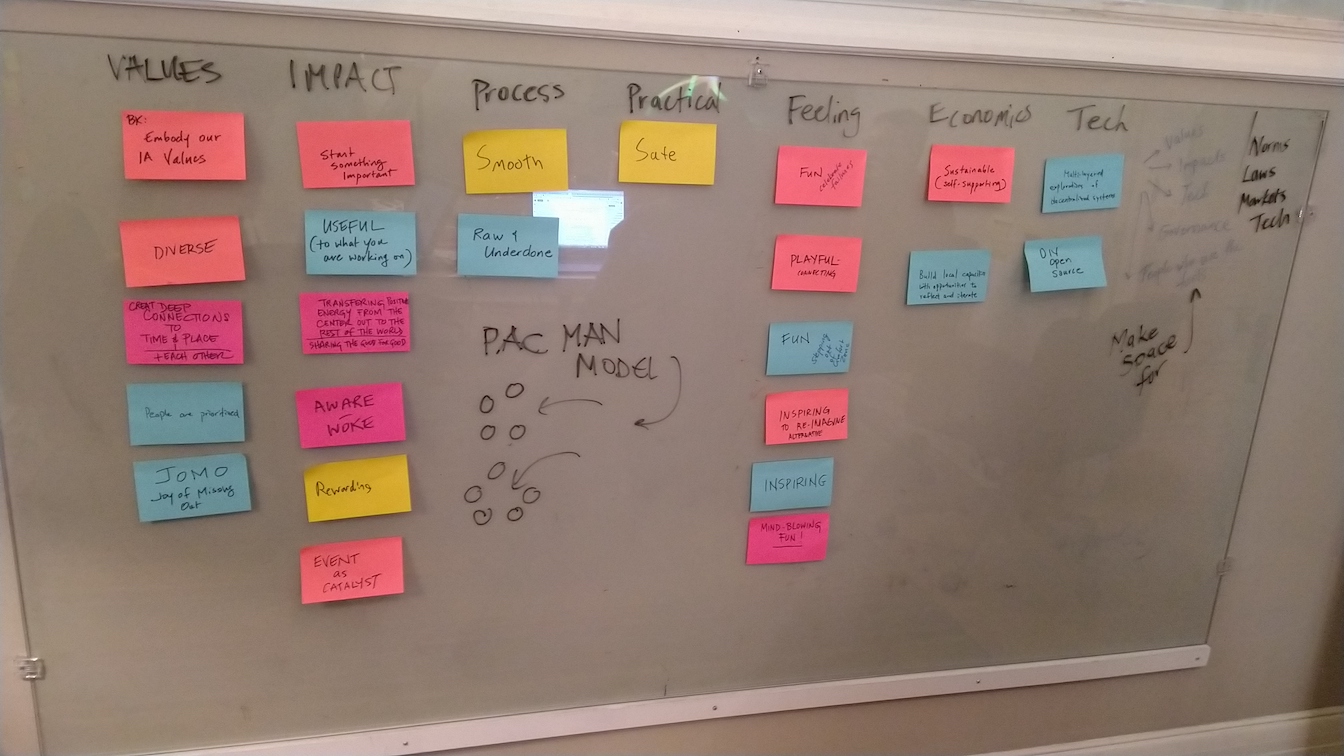 VALUES
BK:
Embody our
IA Values
DIVERSE
CREAT DEEP
CONNECTIONS
TO
TIME & PLACE
+ EACH OTHER
People are prioritized
JOMO
Joy of Missing
Out
IMPACT
Start
something
Important
USEFUL
(to what you
are working on)
TRANSFERING POSITIVE
ENERGY FROM THE
CENTER OUT TO THE
REST OF THE WORLD
SHARING THE GOOD FOR GOOD
AWARE
WOKE
Rewarding
EVENT
as
CATALYST
Process
Smooth
Raw &
Underdone
PAC MAN
MODEL
Practical
Safe
Feeling
FUN
celebrate
failures
PLAYFUL
CONNECTING
FUN
stepping
out of
INSPIRING
TO RE-IMAGINE
ALTERNATIVE
INSPIRING
MIND-BLOWING
FUN!
Economics
Sustainable
(self-supporting)
Build local capacities
with opportunities to
reflect and iterate
Tech
Multilayered
exploration of
decentralized systems
DIY
open
source
values
Impacts
Tech
Governance
People who use the
Make
space
for
Norms
Laws
Markets
Tech